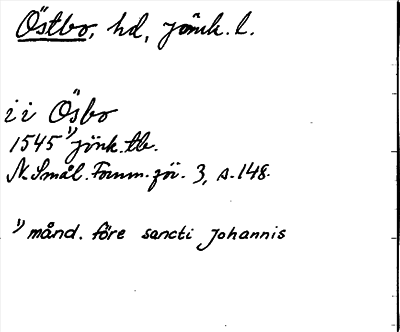 Östbo, hd, jönk. l.
i i Ösbo
1545 1) jönk. tb.
N. Smål. Fornm. för. 3, s. 148.
1) månd. före sancti Johannis